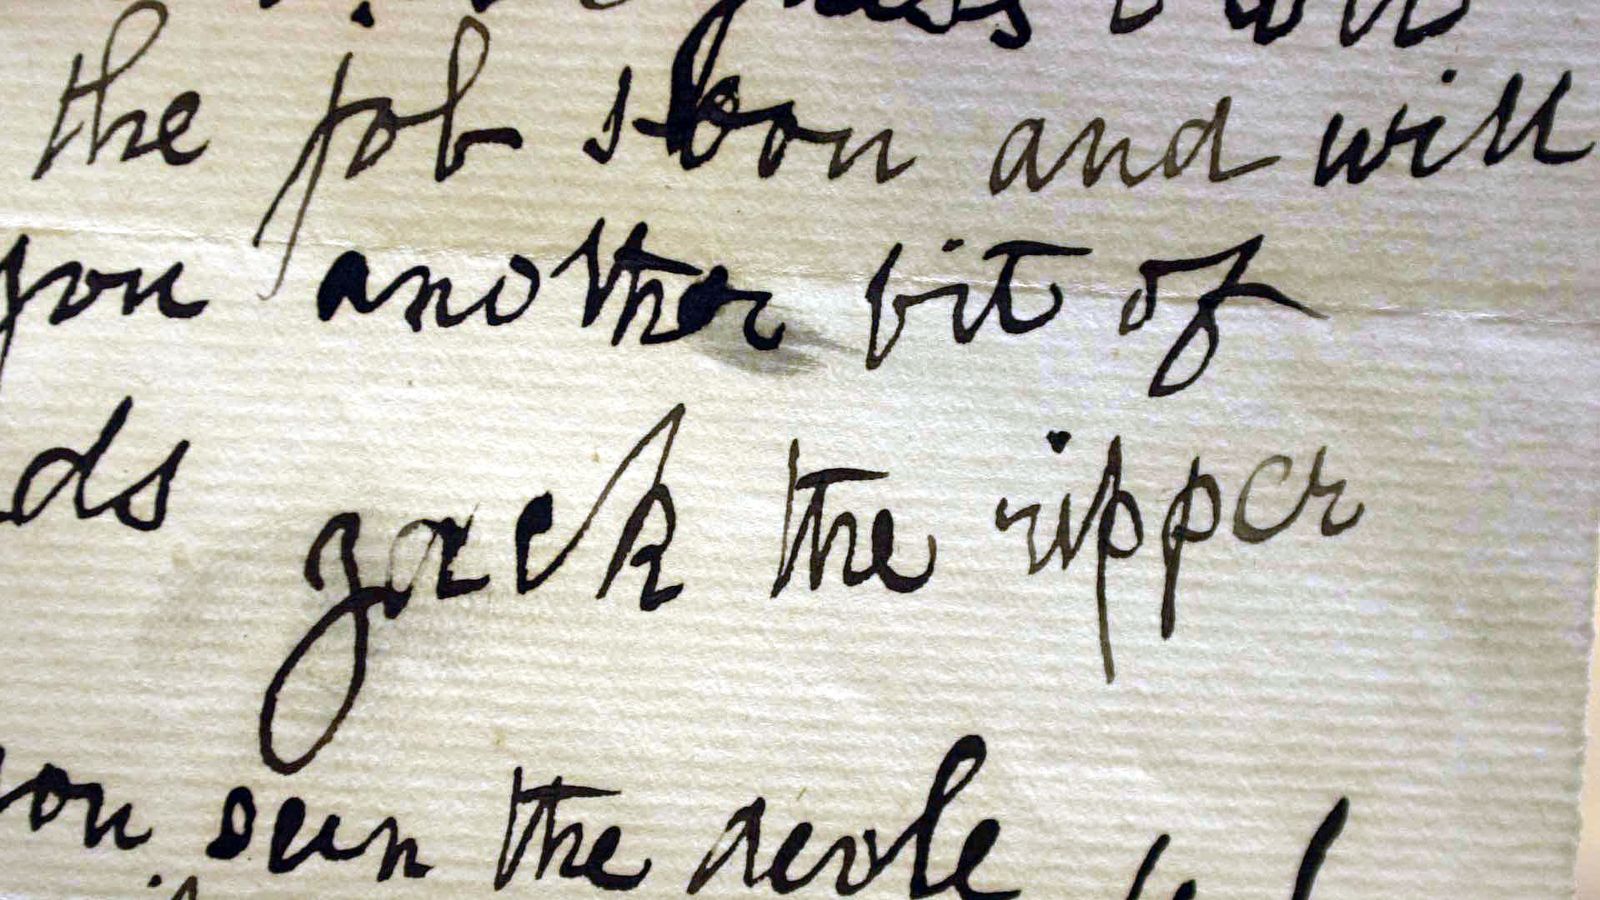 the job soon and will
you another bit of
ds
Jack the ripper
you seen the devle